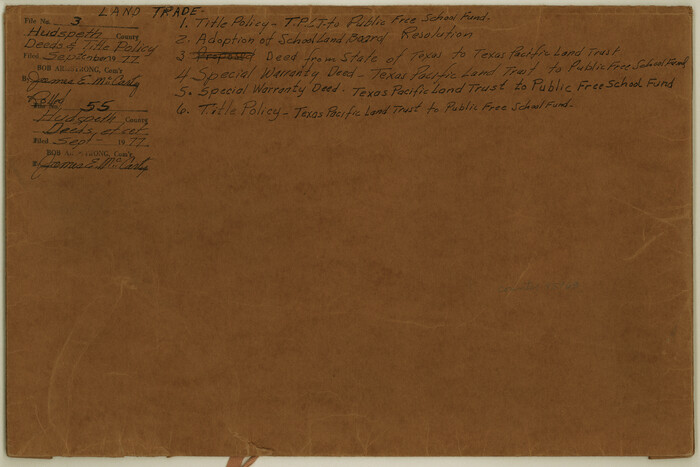 LAND TRADE-
File No. 3
Hudspeth County
Deeds & Title Policy
Filed September 77
BOB ARMSTRONG, Com'r
By James E. McCarley
Rolled
55
Hudspeth County
Deeds, et cet.
Filed Sept- 1977
BOB ARMSTRONG, Com'r
By James E. McCarley
1. Title Policy - T.P.L.T. to Public Free School Fund.
2. Adoption of School Land Board Resolution
3 Deed from State of Texas to Texas Pacific Land Trust
4 Special Warranty Deed - Texas Pacific Land Trust to Public Free School Fund
5. Special Warranty Deed - Texas Pacific Land Trust to Public Free School Fund
6. Title Policy - Texas Pacific Land Trust to Public Free School Fund.